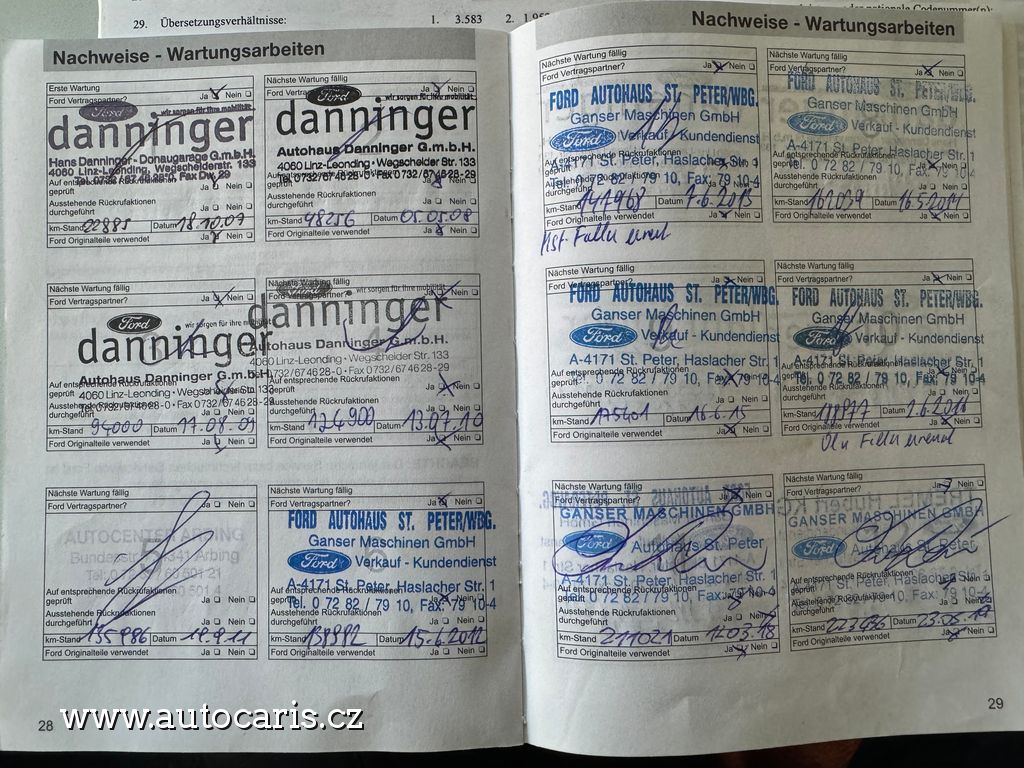 29. Übersetzungsverhältnisse: 1. 3.583 2.
Nachweise - Wartungsarbeiten
Erste Wartung
Ford Vertragspartner? Ja Nein
Ford
wir sorgen für ihre mobilität
danninger
Hans Danninger - Donaugarage G.m.b.H.
4060 Linz-Leonding · Wegscheiderstr. 133
Auf entsprechende Rückrufaktionen
geprüft Ja Nein
Ausstehende Rückrufaktionen
durchgeführt Ja Nein
km-Stand 22885 Datum 18.10.07
Ford Originalteile verwendet Ja Nein
Nächste Wartung fällig
Ford Vertragspartner? Ja Nein
Ford
wir sorgen für ihre mobilität
danninger
Autohaus Danninger G.m.b.H.
4060 Linz-Leonding · Wegscheider Str. 133
Tel. 0732/67 46 28-0 · Fax 0732/674628-29
Ausstehende Rückrufaktionen
durchgeführt Ja Nein
km-Stand 48256 Datum 05.05.08
Ford Originalteile verwendet Ja Nein
Nächste Wartung fällig
Ford Vertragspartner? Ja Nein
Ford
wir sorgen für ihre mobilität
danninger
Autohaus Danninger G.m.b.H.
4060 Linz-Leonding · Wegscheider Str. 133
Tel. 0732/674628-0 · Fax 0732/674628-29
Auf entsprechende Rückrufaktionen
geprüft
Ausstehende Rückrufaktionen
durchgeführt Ja Nein
km-Stand 94000 Datum 11.08.09
Ford Originalteile verwendet Ja Nein
Nächste Wartung fällig
Ford Vertragspartner? Ja Nein
wir sorgen für ihre mobilität
danninger
Autohaus Danninger G.m.b.H.
4060 Linz-Leonding · Wegscheider Str. 133
Auf entsprechende Rückrufaktionen
geprüft Ja Nein
Ausstehende Rückrufaktionen
durchgeführt Ja Nein
km-Stand 124900 Datum 13.07.10
Ford Originalteile verwendet Ja Nein
Nächste Wartung fällig
Ford Vertragspartner? Ja Nein
AUTOCENTER ARBING
Auf entsprechende Rückrufaktionen
geprüft Ja Nein
Ausstehende Rückrufaktionen
durchgeführt Ja Nein
km-Stand 135986 Datum 19.9.11
Ford Originalteile verwendet Ja Nein
Nächste Wartung fällig
Ford Vertragspartner? Ja Nein
FORD AUTOHAUS ST. PETER/WBG.
Ganser Maschinen GmbH
Ford Verkauf - Kundendienst
A-4171 St. Peter, Haslacher Str. 1
Auf entsprechende Rückrufaktionen
geprüft
Tel. 0 72 82 / 79 10, Fax: 79 10-4
Ausstehende Rückrufaktionen
durchgeführt Ja Nein
km-Stand 138982 Datum 15.6.2012
Ford Originalteile verwendet Ja Nein
28
Nachweise - Wartungsarbeiten
Nächste Wartung fällig
Ford Vertragspartner? Ja Nein
FORD AUTOHAUS ST. PETER/WBG.
Ganser Maschinen GmbH
Ford Verkauf - Kundendienst
A-4171 St. Peter, Haslacher Str. 1
Tel. 0 72 82 / 79 10, Fax: 79 10-4
km-Stand 141968 Datum 7.6.2013
Ford Originalteile verwendet Ja Nein
Nächste Wartung fällig
Ford Vertragspartner? Ja Nein
FORD AUTOHAUS ST. PETER/WBG.
Ganser Maschinen GmbH
Ford Verkauf - Kundendienst
A-4171 St. Peter, Haslacher Str. 1
Tel. 0 72 82 / 79 10, Fax: 79 10-4
km-Stand Datum 16.5.2014
Ford Originalteile verwendet Ja Nein
Nächste Wartung fällig
Ford Vertragspartner? Ja Nein
FORD AUTOHAUS ST. PETER/WBG.
Ganser Maschinen GmbH
Ford Verkauf - Kundendienst
A-4171 St. Peter, Haslacher Str. 1
Tel. 0 72 82 / 79 10, Fax: 79 10-4
Ausstehende Rückrufaktionen
durchgeführt Ja Nein
km-Stand 175401 Datum 16.6.15
Ford Originalteile verwendet Ja Nein
Nächste Wartung fällig
Ford Vertragspartner? Ja Nein
FORD AUTOHAUS ST. PETER/WBG.
Ganser Maschinen GmbH
Ford Verkauf - Kundendienst
A-4171 St. Peter, Haslacher Str. 1
Tel. 0 72 82 / 79 10, Fax: 79 10-4
Ausstehende Rückrufaktionen
durchgeführt Ja Nein
km-Stand Datum 1.6.2016
Ford Originalteile verwendet Ja Nein
Nächste Wartung fällig
Ford Vertragspartner? Ja Nein
GANSER MASCHINEN GMBH
Ford Autohaus St. Peter
A-4171 St. Peter, Haslacher Str. 1
Tel. 0 72 82 / 79 10, Fax: 79 10-4
Ausstehende Rückrufaktionen
durchgeführt Ja Nein
km-Stand 211021 Datum 12.03.18
Ford Originalteile verwendet Ja Nein
Nächste Wartung fällig
Ford Vertragspartner? Ja Nein
GANSER MASCHINEN GMBH
Ford Autohaus St. Peter
Auf entsprechende Rückrufaktionen
geprüft
Ausstehende Rückrufaktionen
durchgeführt Ja Nein
km-Stand 223486 Datum
Ford Originalteile verwendet Ja Nein
29
www.autocaris.cz